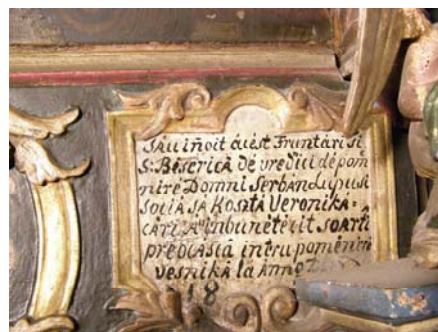 S'au inoit acest Fruntari si
S: Biserică de vrednici de pom
nire Domni Serban Lupu si
soția sa Kosta Veronika
cari Au Inbunetețit soarti
preocasiă intru pomenire
vesnikă la Anno
18